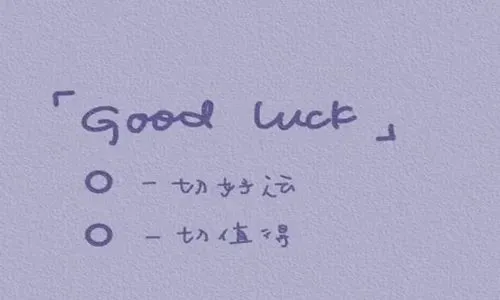 「Good luck」
○ 一切好运
○ 一切值得